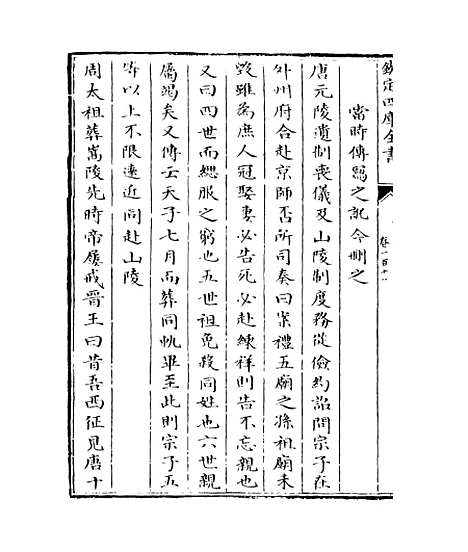 欽定四庫全書
卷一百十一
當時傳寫之訛今刪之
唐元陵遺制喪儀及山陵制度務從儉約詔問宗子在
外州府合赴京師否所司奏曰案禮五廟之孫祖廟未
毀雖為庶人冠娶妻必告死必赴練祥則告不忘親也
又曰四世而緦服之窮也五世祖免殺同姓也六世親
屬竭矣又傳云天子七月而葬同軌畢至此則宗子五
等以上不限遠近同赴山陵
周太祖葬嵩陵先時帝屢戒晉王曰昔吾西征見唐十